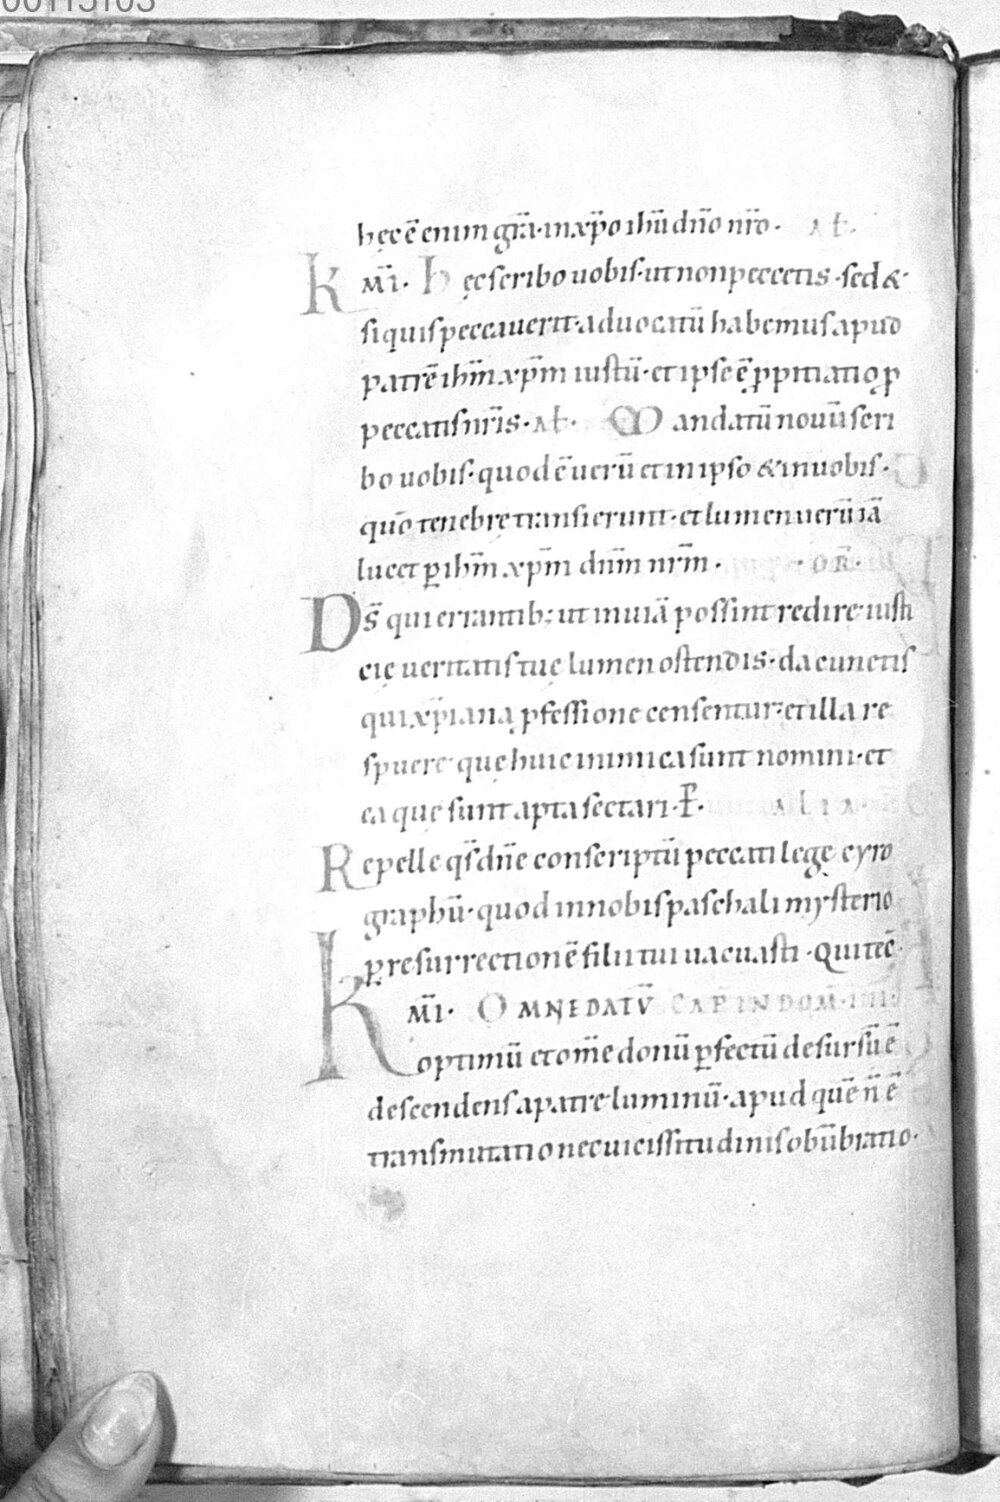 hęc ē enim gr̄a · in xp̄o ihū dn̄o nr̄o · AƚƗ ·
K m̄i · hęc scribo uobis · ut non peccetis · sed &
si quis peccauerit · aduocatū habemus apud
patrē ihm̄ xp̄m iustū · et ipse ē ꝓpitiatio ꝓ
peccatis nr̄is · Aƚ · Mandatū nouū scri
bo uobis · quod ē uerū et in ipso & in uobis ·
quō tenebrę transierunt · et lumen uerū iā
lucet ꝑ ihm̄ xp̄m dnm̄ nrm̄ · · OR̄ ·
Ds̄ qui errantib; ut in uiā possint redire iusti
cię ueritatis tuę lumen ostendis · da cunctis
qui xp̄iana ꝓfessione censentur · et illa re
spuere quę huic inimica sunt nomini · et
ea quę sunt apta sectari · P̄ · ALIA ·
Repelle qs̄ dn̄e conscriptū peccati lege cyro
graphū · quod in nobis paschali mysterio
ꝑ resurrectionē filii tui uacuasti · Qui tec̄ ·
K m̄i · OMNE DATŪ CAP̄ IN DOM̄ · IIII ·
optimū et om̄e donū ꝑfectū desursū ē
descendens a patre luminū · apud quē n̄ ē
transmutatio nec uicissitudinis obūbratio ·